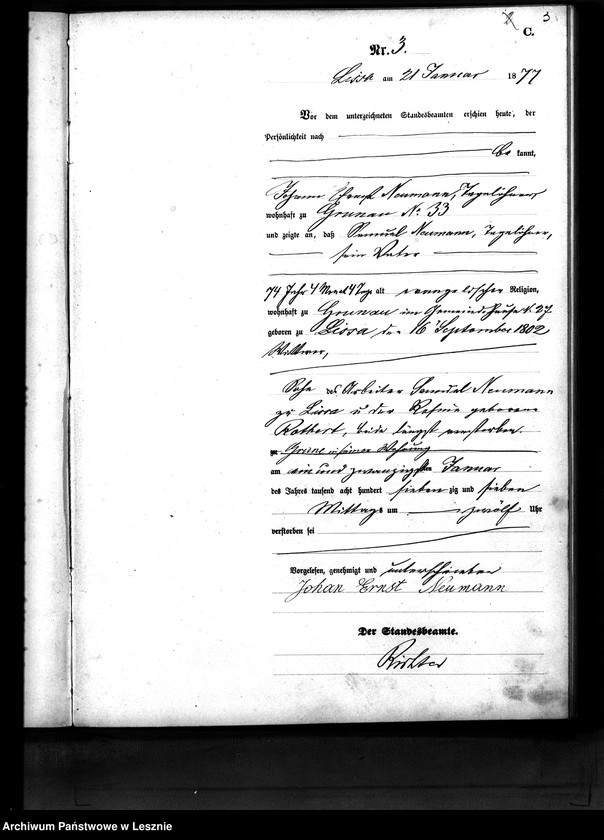 3
C.
Nr. 3.
Lissa am 21 Januar 1877
Vor dem unterzeichneten Standesbeamten erschien heute, der
Persönlichkeit nach
be kannt,
Johann Ernst Neumann, Tagelöhner
wohnhaft zu Grunau No 33
und zeigte an, daß Samuel Neumann, Tagelöhner,
sein Vater
74 Jahr 4 Monat 4 Tage alt evangelischer Religion,
wohnhaft zu Grunau im Gemeinde Hause N. 27
geboren zu Lissa den 16 September 1802
Wittwer,
Sohn des Arbeiter Samuel Neumann
zu Lissa u der geborene
beide längst verstorben.
zu Grune in seiner Wohnung
am ein und zwanzigsten Januar
des Jahres tausend acht hundert sieben zig und sieben
Mittags um zwölf Uhr
verstorben sei
Vorgelesen, genehmigt und unterschrieben
Johan Ernst Neumann
Der Standesbeamte.
Richter
Archiwum Państwowe w Lesznie